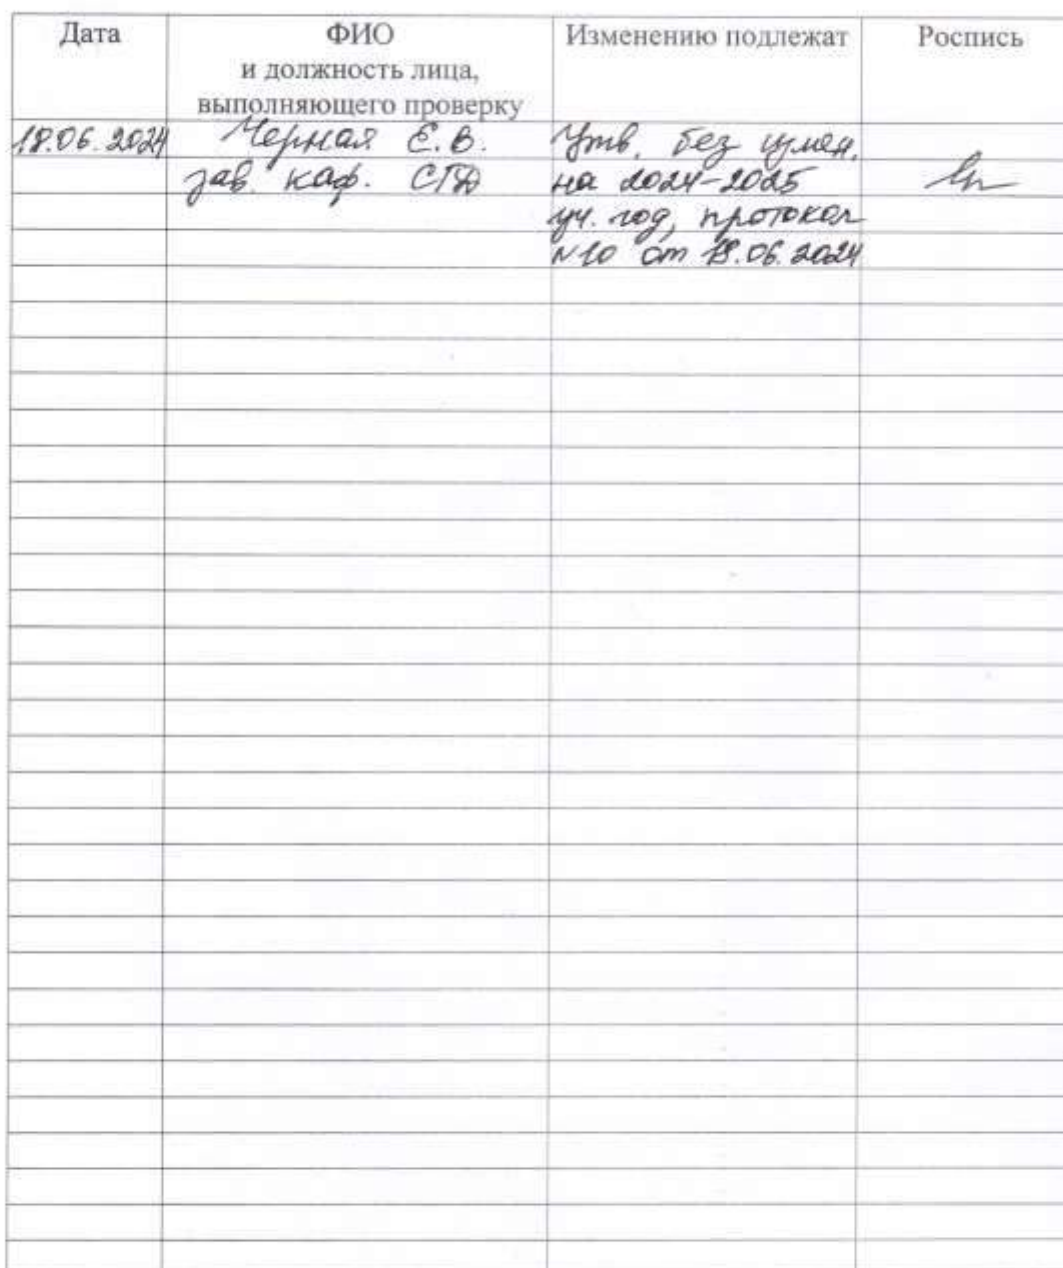 Дата
ФИО
и должность лица,
выполняющего проверку
Изменению подлежат
Роспись
18.06.2024
Черная Е.В.
зав. каф. СГД
Утв. без измен.
на 2024-2025
уч. год, протокол
№10 от 18.06.2024